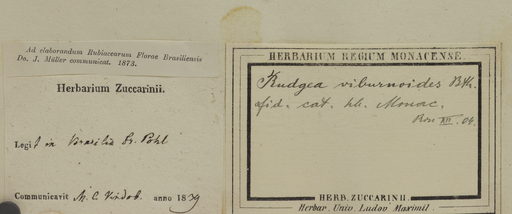 Ad elaborandum Rubiacearum Florae Brasiliensis
Do. J. Müller communicat. 1873.
Herbarium Zuccarinii.
Legit in Brasilia Dr. Pohl
Communicavit M. C. Vindob. anno 1839
HERBARIUM REGIUM MONACENSE
Rudgea viburnoides Bth.
fid. cat. hb. Monac.
Ross XII. 04.
HERB. ZUCCARINII.
Herbar. Univ. Ludov Maximil.